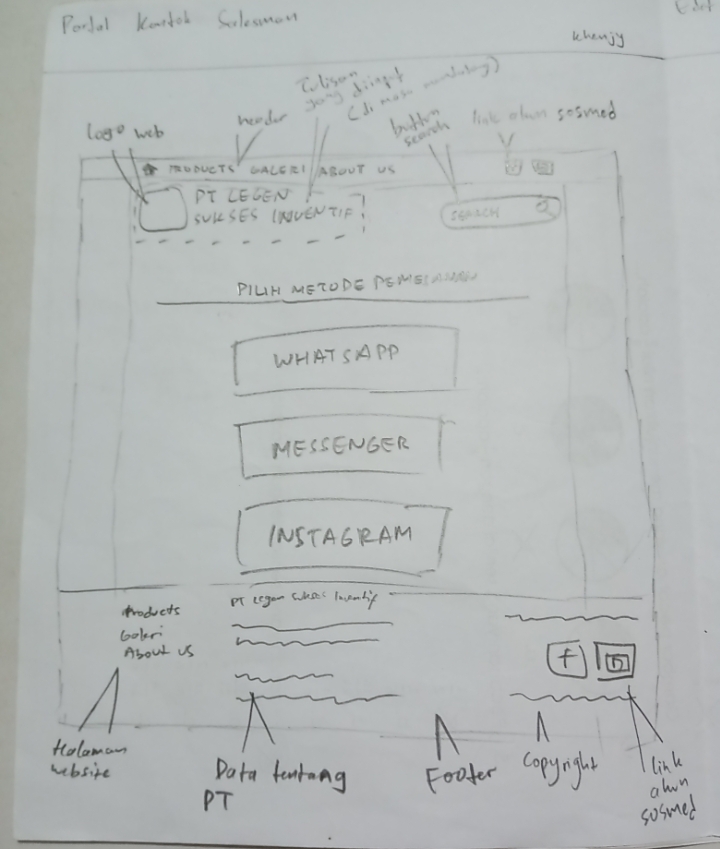 Portal Kontak Salesman
Edit
khenjy
Tulisan
yang diinput
(di man
logo web
header
button
search
link akun sosmed
PRODUCTS GALERI ABOUT US
PT LEGEN
SUKSES INVENTIF
SEARCH
PILIH METODE PEMESANAN
WHATSAPP
MESSENGER
INSTAGRAM
Products
Galeri
About us
PT Legen Sukses Inventif
f
Halaman
website
Data tentang
PT
Footer
Copyright
link
akun
sosmed